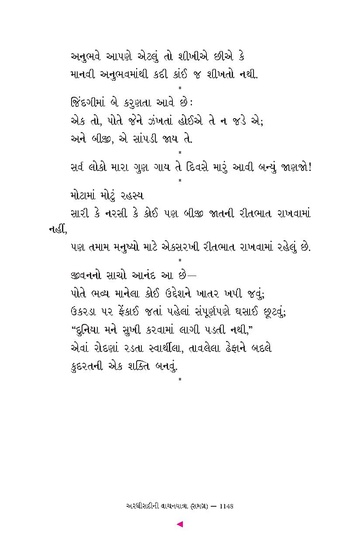 અનુભવે આપણે એટલું તો શીખીએ છીએ કે
માનવી અનુભવમાંથી કદી કાંઈ જ શીખતો નથી.
*
જિંદગીમાં બે કરુણતા આવે છે :
એક તો, પોતે જેને ઝંખતાં હોઈએ તે ન જડે એ;
અને બીજી, એ સાંપડી જાય તે.
*
સર્વ લોકો મારા ગુણ ગાય તે દિવસે મારું આવી બન્યું જાણજો!
*
મોટામાં મોટું રહસ્ય
સારી કે નરસી કે કોઈ પણ બીજી જાતની રીતભાત રાખવામાં
નહીં,
પણ તમામ મનુષ્યો માટે એકસરખી રીતભાત રાખવામાં રહેલું છે.
*
જીવનનો સાચો આનંદ આ છે—
પોતે ભવ્ય માનેલા કોઈ ઉદ્દેશને ખાતર ખપી જવું;
ઉકરડા પર ફેંકાઈ જતાં પહેલાં સંપૂર્ણપણે ઘસાઈ છૂટવું;
“દુનિયા મને સુખી કરવામાં લાગી પડતી નથી,”
એવાં રોદણાં રડતા સ્વાર્થીલા, તાવલેલા ઢેફાને બદલે
કુદરતની એક શક્તિ બનવું.
*
અરધીસદીની વાચનયાત્રા (સમગ્ર) — 1148